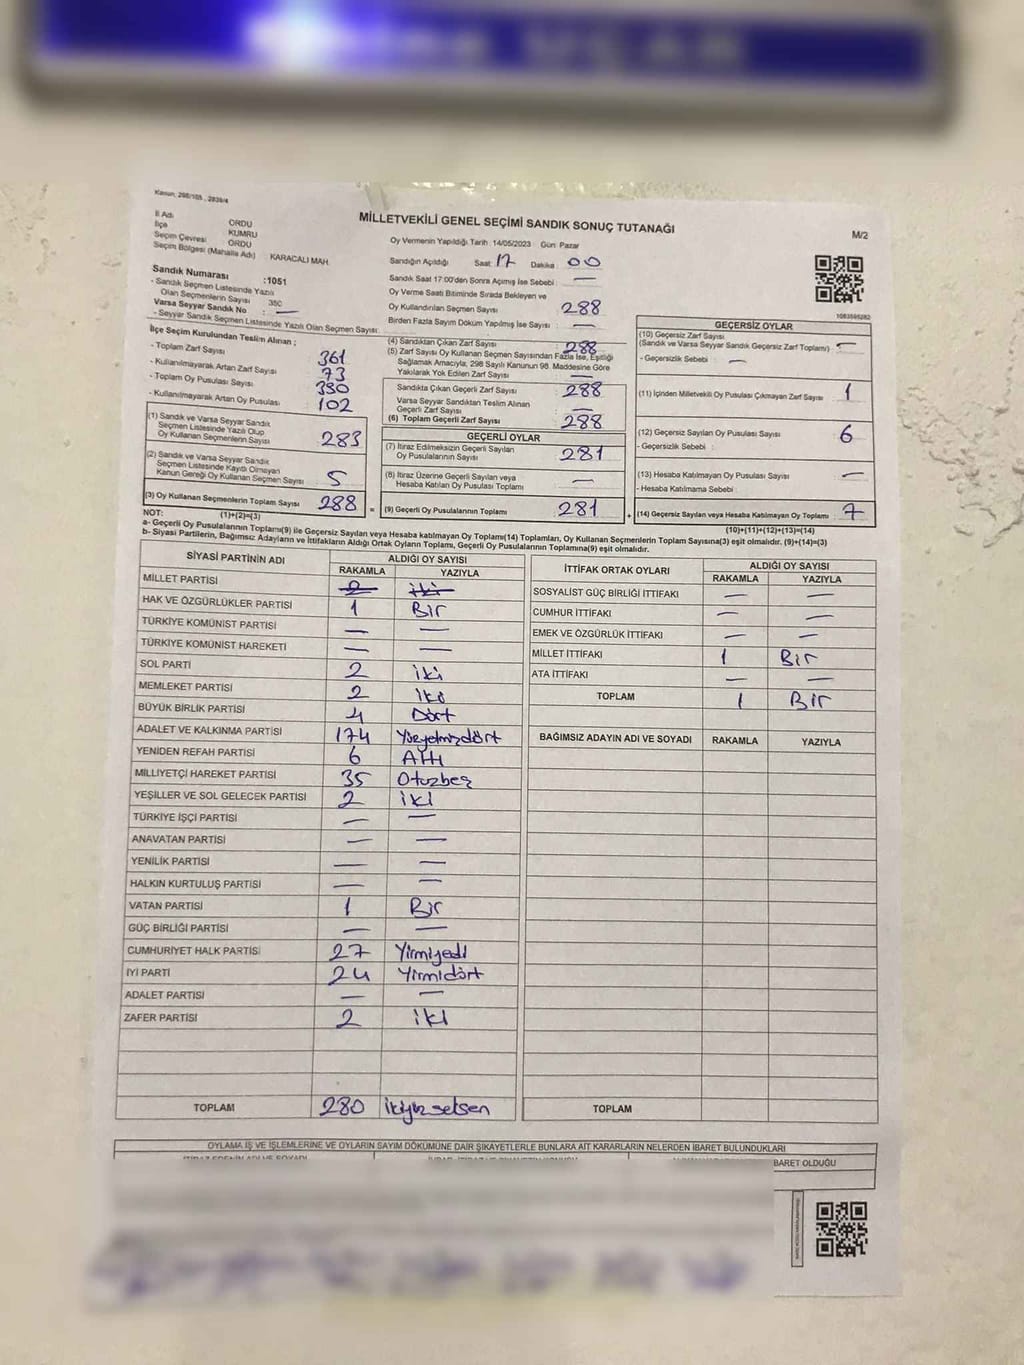 UÇAR
Kanun, 298/105 , 2839/4
MİLLETVEKİLİ GENEL SEÇİMİ SANDIK SONUÇ TUTANAĞI
M/2
İl Adı ORDU
İlçe KUMRU
Seçim Çevresi ORDU
Seçim Bölgesi (Mahalle Adı) KARACALI MAH.
Sandık Numarası :1051
- Sandık Seçmen Listesinde Yazılı
Olan Seçmenlerin Sayısı 350
Varsa Seyyar Sandık No : —
- Seyyar Sandık Seçmen Listesinde Yazılı Olan Seçmen Sayısı:
Oy Vermenin Yapıldığı Tarih 14/05/2023 Gün Pazar
Sandığın Açıldığı Saat 17 Dakika 00
Sandık Saat 17:00'den Sonra Açımış İse Sebebi : —
Oy Verme Saati Bitiminde Sırada Bekleyen ve
Oy Kullandırılan Seçmen Sayısı : 288
Birden Fazla Sayım Döküm Yapılmış İse Sayısı : —
1083595282
İlçe Seçim Kurulundan Teslim Alınan ;
- Toplam Zarf Sayısı 361
- Kullanılmayarak Artan Zarf Sayısı 73
- Toplam Oy Pusulası Sayısı 390
- Kullanılmayarak Artan Oy Pusulası 102
(1) Sandık ve Varsa Seyyar Sandık
Seçmen Listesinde Yazılı Olup
Oy Kullanan Seçmenlerin Sayısı 283
(2) Sandık ve Varsa Seyyar Sandık
Seçmen Listesinde Kayıtlı Olmayan
Kanun Gereği Oy Kullanan Seçmen Sayısı 5
(3) Oy Kullanan Seçmenlerin Toplam Sayısı 288
(1)+(2)=(3)
(4) Sandıktan Çıkan Zarf Sayısı : 288
(5) Zarf Sayısı Oy Kullanan Seçmen Sayısından Fazla İse, Eşitliği
Sağlamak Amacıyla, 298 Sayılı Kanunun 98. Maddesine Göre
Yakılarak Yok Edilen Zarf Sayısı : —
Sandıkta Çıkan Geçerli Zarf Sayısı : 288
Varsa Seyyar Sandıktan Teslim Alınan
Geçerli Zarf Sayısı : —
(6) Toplam Geçerli Zarf Sayısı : 288
GEÇERLİ OYLAR
(7) İtiraz Edilmeksizin Geçerli Sayılan
Oy Pusulalarının Sayısı : 281
(8) İtiraz Üzerine Geçerli Sayılan veya
Hesaba Katılan Oy Pusulası Toplamı : —
= (9) Geçerli Oy Pusulalarının Toplamı 281
GEÇERSİZ OYLAR
(10) Geçersiz Zarf Sayısı
(Sandık ve Varsa Seyyar Sandık Geçersiz Zarf Toplamı) : —
- Geçersizlik Sebebi : —
(11) İçinden Milletvekili Oy Pusulası Çıkmayan Zarf Sayısı 1
(12) Geçersiz Sayılan Oy Pusulası Sayısı 6
- Geçersizlik Sebebi :
(13) Hesaba Katılmayan Oy Pusulası Sayısı : —
- Hesaba Katılmama Sebebi :
+ (14) Geçersiz Sayılan veya Hesaba Katılmayan Oy Toplamı 7
(10)+(11)+(12)+(13)=(14)
NOT:
a- Geçerli Oy Pusulalarının Toplamı(9) ile Geçersiz Sayılan veya Hesaba katılmayan Oy Toplamı(14) Toplamları, Oy Kullanan Seçmenlerin Toplam Sayısına(3) eşit olmalıdır. (9)+(14)=(3)
b- Siyasi Partilerin, Bağımsız Adayların ve İttifakların Aldığı Ortak Oyların Toplamı, Geçerli Oy Pusulalarının Toplamına(9) eşit olmalıdır.
SİYASİ PARTİNİN ADI ALDIĞI OY SAYISI
RAKAMLA YAZIYLA
MİLLET PARTİSİ 2 İki
HAK VE ÖZGÜRLÜKLER PARTİSİ 1 Bir
TÜRKİYE KOMÜNİST PARTİSİ — —
TÜRKİYE KOMÜNİST HAREKETİ — —
SOL PARTİ 2 iki
MEMLEKET PARTİSİ 2 iki
BÜYÜK BİRLİK PARTİSİ 4 Dört
ADALET VE KALKINMA PARTİSİ 174 Yüzyetmişdört
YENİDEN REFAH PARTİSİ 6 Altı
MİLLİYETÇİ HAREKET PARTİSİ 35 Otuzbeş
YEŞİLLER VE SOL GELECEK PARTİSİ 2 iki
TÜRKİYE İŞÇİ PARTİSİ — —
ANAVATAN PARTİSİ — —
YENİLİK PARTİSİ — —
HALKIN KURTULUŞ PARTİSİ — —
VATAN PARTİSİ 1 Bir
GÜÇ BİRLİĞİ PARTİSİ — —
CUMHURİYET HALK PARTİSİ 27 Yirmiyedi
İYİ PARTİ 24 Yirmidört
ADALET PARTİSİ — —
ZAFER PARTİSİ 2 iki
TOPLAM 280 ikiyüz seksen
İTTİFAK ORTAK OYLARI ALDIĞI OY SAYISI
RAKAMLA YAZIYLA
SOSYALİST GÜÇ BİRLİĞİ İTTİFAKI — —
CUMHUR İTTİFAKI — —
EMEK VE ÖZGÜRLÜK İTTİFAKI — —
MİLLET İTTİFAKI 1 Bir
ATA İTTİFAKI — —
TOPLAM 1 Bir
BAĞIMSIZ ADAYIN ADI VE SOYADI RAKAMLA YAZIYLA
TOPLAM
OYLAMA İŞ VE İŞLEMLERİNE VE OYLARIN SAYIM DÖKÜMÜNE DAİR ŞİKAYETLERLE BUNLARA AİT KARARLARIN NELERDEN İBARET BULUNDUKLARI
İBARET OLDUĞU